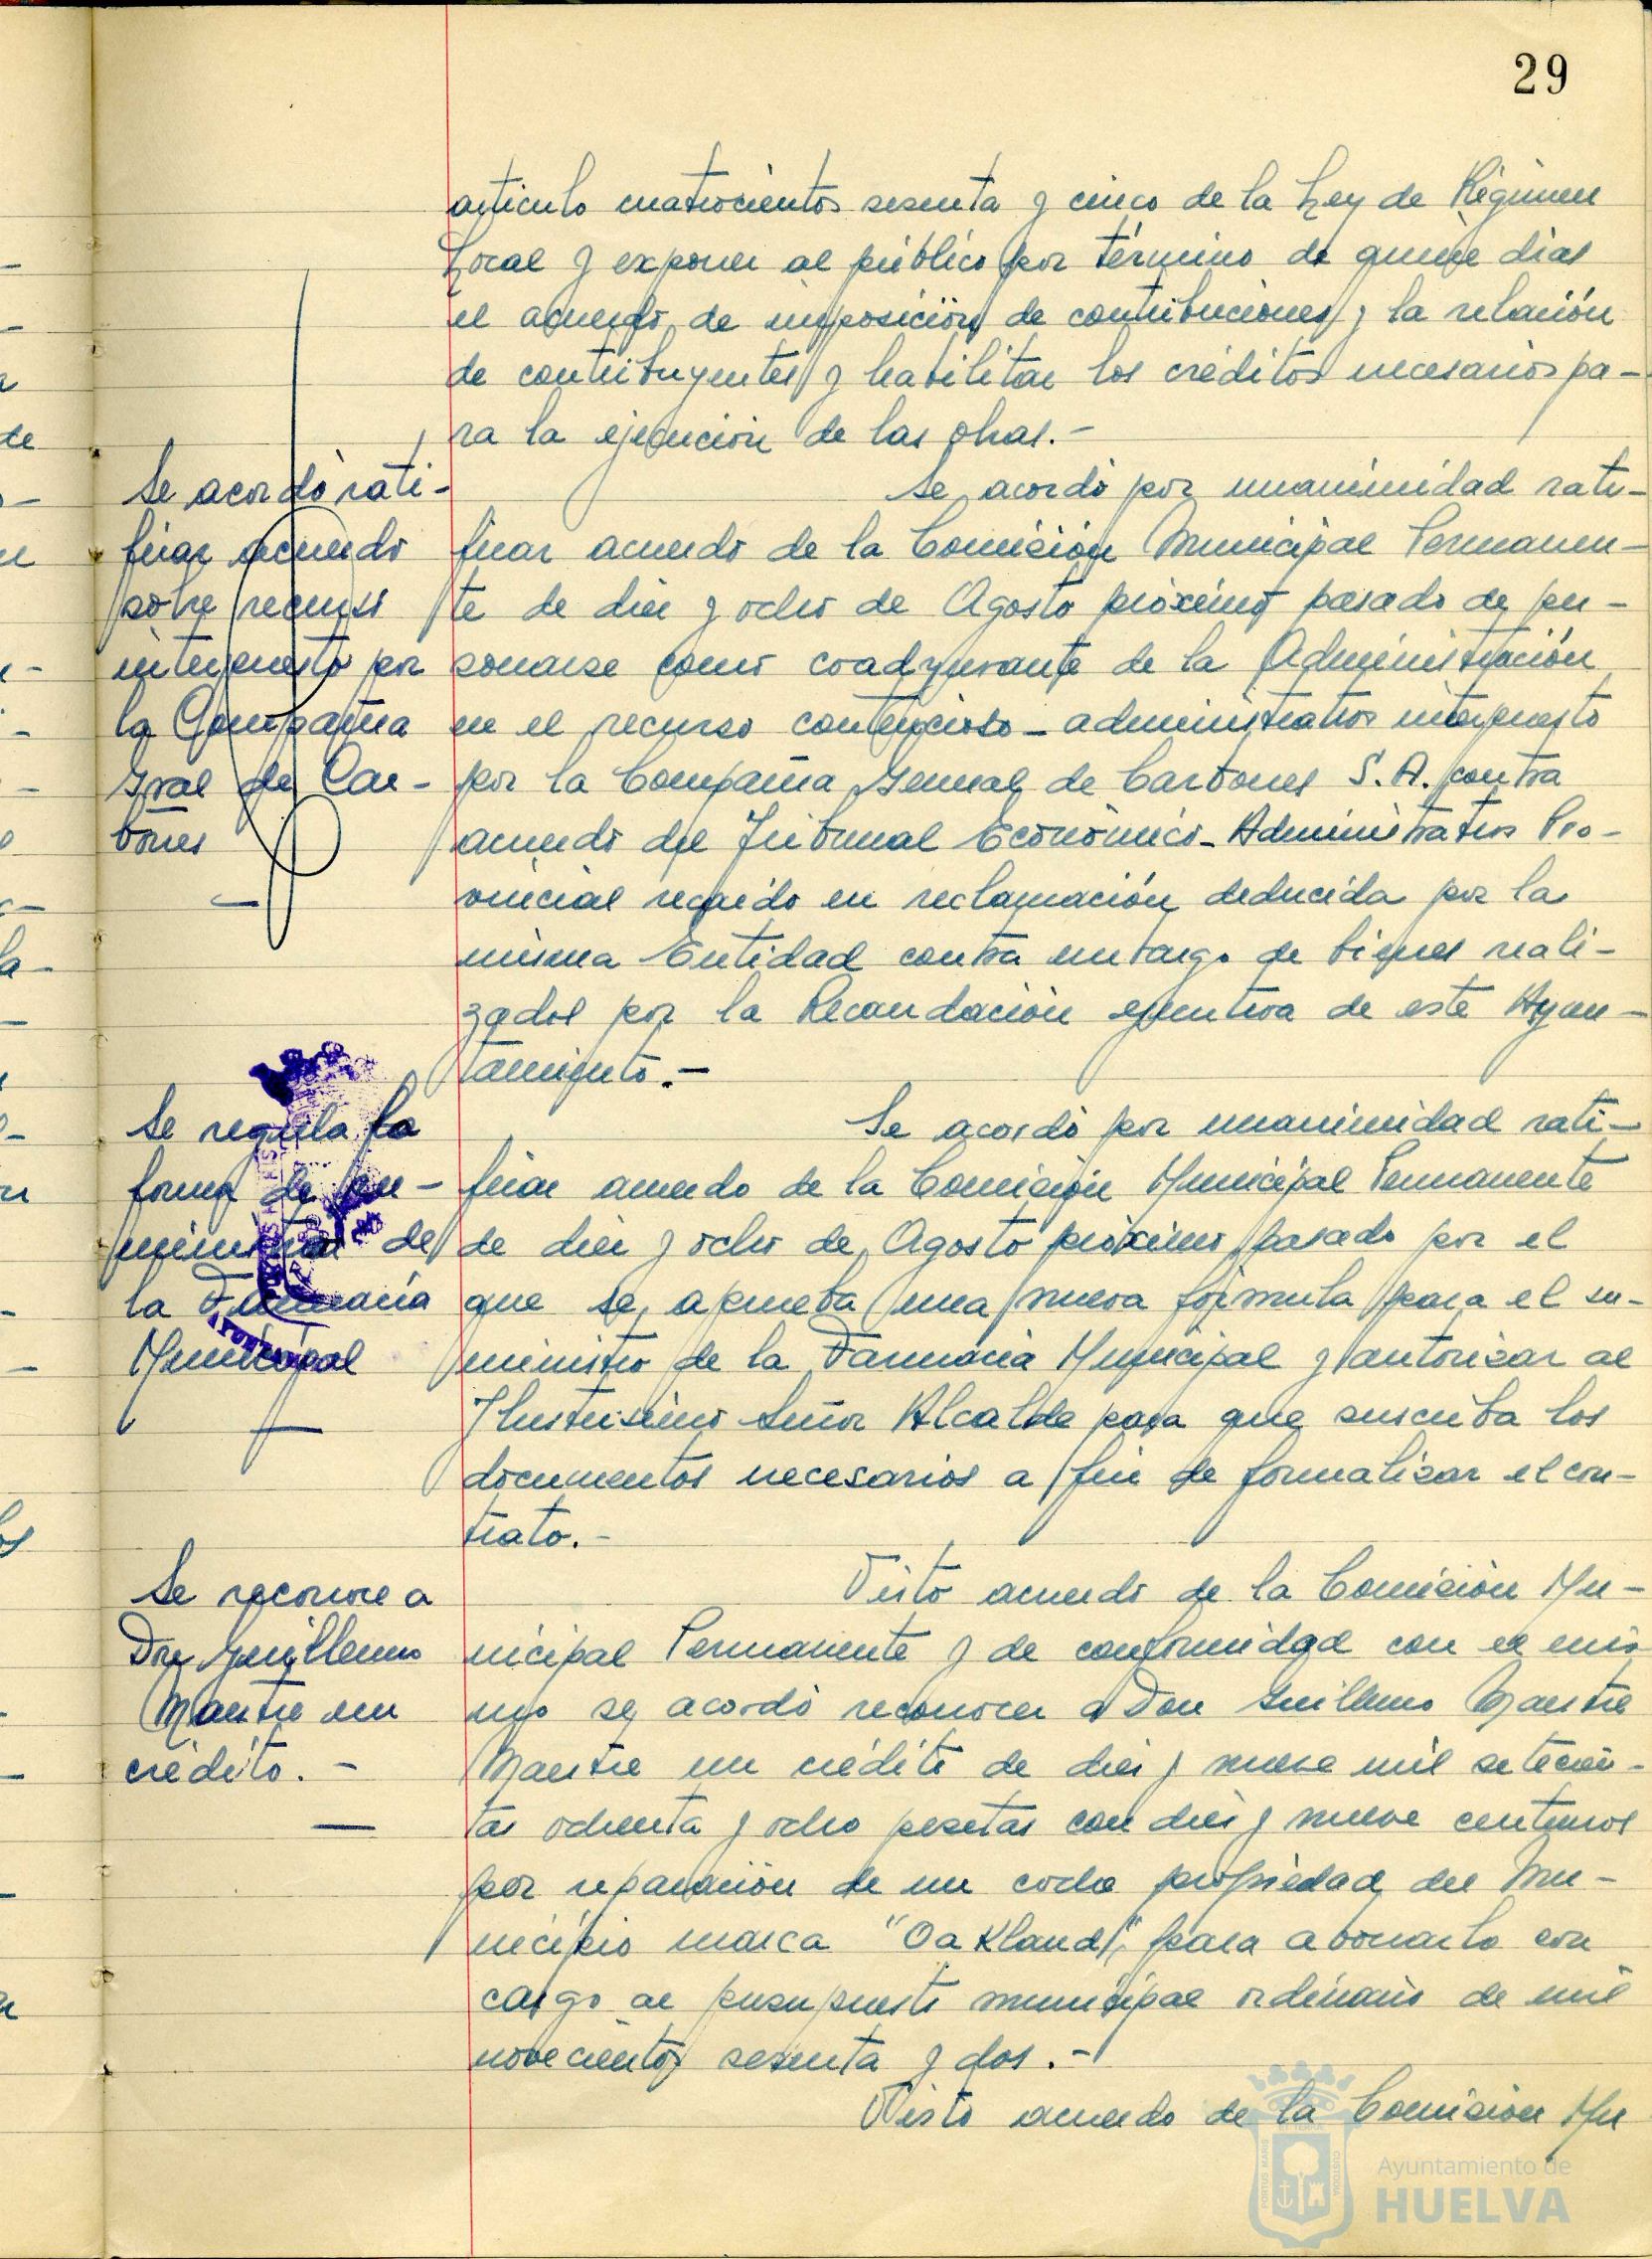 29
artículo cuatrocientos sesenta y cinco de la Ley de Régimen
Local y exponer al público por término de quince dias
el acuerdo de imposición de contribuciones y la relación
de contribuyentes y habilitar los créditos necesarios pa-
ra la ejecución de las obras.-
Se acordó rati-
ficar acuerdo
sobre recurso
interpuesto por
la Compañia
Gral de Car-
bones
Se acordó por unanimidad rati-
ficar acuerdo de la Comisión Municipal Permanen-
te de diez y ocho de Agosto próximo pasado de per-
sonarse como coadyuvante de la Administración
en el recurso contencioso-administrativo interpuesto
por la Compañia General de Carbones S.A. contra
acuerdo del Tribunal Económico-Administrativo Pro-
vincial recaido en reclamación deducida por la
misma Entidad contra embargo de bienes reali-
zados por la Recaudación ejecutiva de este Ayun-
tamiento.-
Se regula la
forma de su-
ministrar de
la Farmacia
Municipal
Se acordó por unanimidad rati-
ficar acuerdo de la Comisión Municipal Permanente
de diez y ocho de Agosto próximo pasado por el
que se aprueba una nueva fórmula para el su-
ministro de la Farmacia Municipal y autorizar al
Ilustrísimo Señor Alcalde para que suscriba los
documentos necesarios a fin de formalizar el con-
trato.-
Se reconoce a
Don Guillermo
Maestre un
crédito.-
Visto acuerdo de la Comisión Mu-
nicipal Permanente y de conformidad con el mis
mo se acordó reconocer a Don Guillermo Maestre
Maestre un crédito de diez y nueve mil setecien-
tas ochenta y ocho pesetas con diez y nueve centimos
por reparación de un coche propiedad del Mu-
nicipio marca "Oakland", para abonarlo con
cargo al presupuesto municipal ordinario de mil
novecientos sesenta y dos.-
Visto acuerdo de la Comisión Mu
Ayuntamiento de
HUELVA